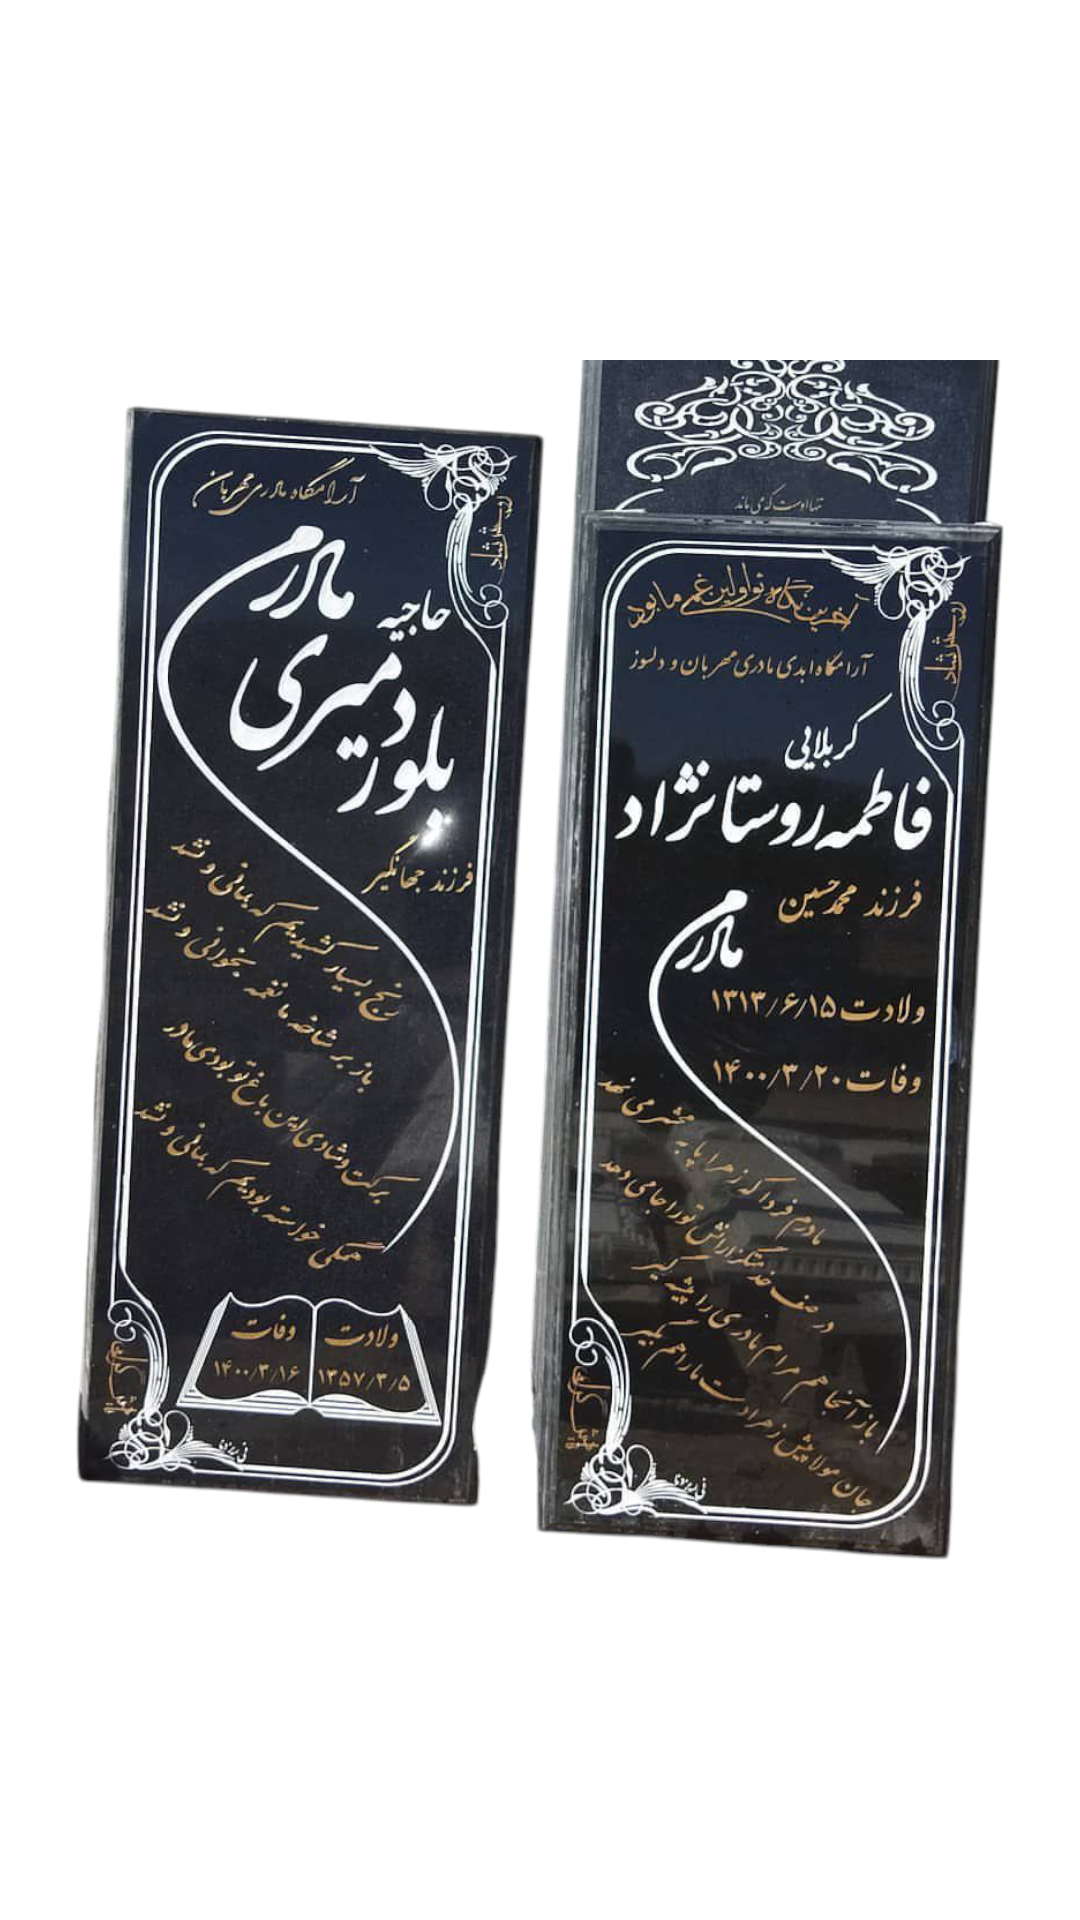 آرامگاه مادری مهربان
مادرم
حاجیه
بلور دمیری
فرزند جهانگیر
رنج بسیار کشیدیم که بمانی و نشد
باز بر شاخه ما نغمه بخوانی و نشد
برکت و شادی این باغ تو بودی مادر
همگی خواسته بودیم که بمانی و نشد
ولادت
۱۳۵۷/۳/۵
وفات
۱۴۰۰/۳/۱۶
تنها اوست که می ماند
آخرین نگاه تو اولین غم ما بود
آرامگاه ابدی مادری مهربان و دلسوز
کربلایی
فاطمه روستانژاد
فرزند محمدحسین
مادرم
ولادت ۱۳۱۳/۶/۱۵
وفات ۱۴۰۰/۳/۲۰
مادرم فردا که زهرا پا به محشر می نهد
در صف خدمتگزارانش تو را جا می دهد
باز آنجا هم مرام مادری را پیشه گیر
جان مولا پیش زهرا دست ما را هم بگیر